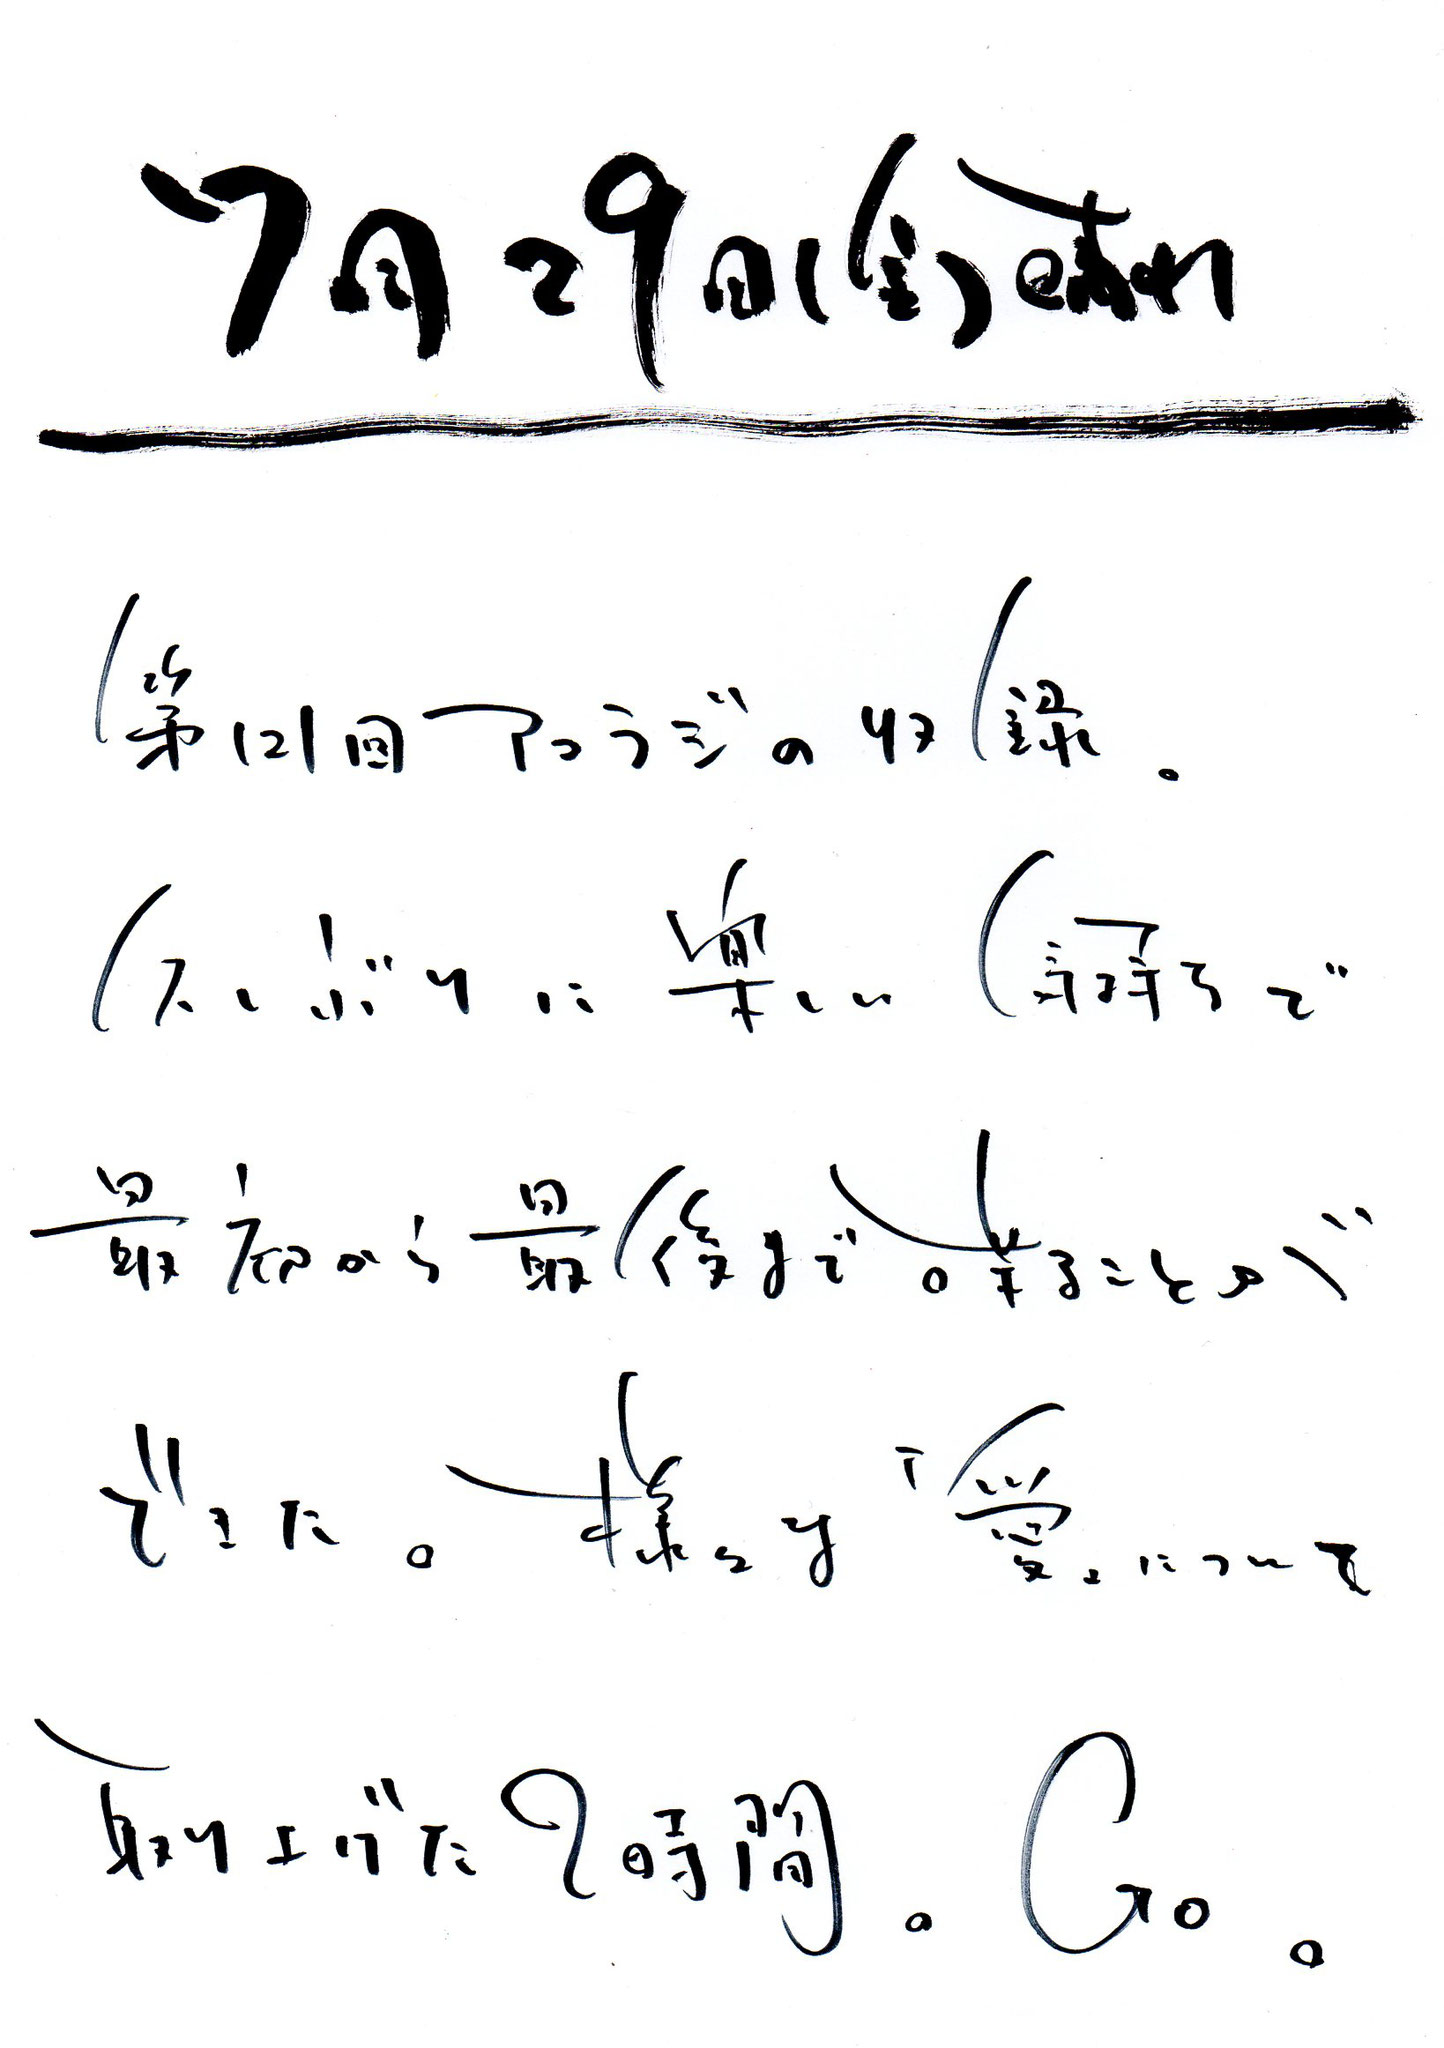 7月29日(金)晴れ
第121回アコラジの収録。
久しぶりに楽しい録りで
最初から最後まで喋ることが
できた。様々な「愛」について
取り上げた2時間。Go。